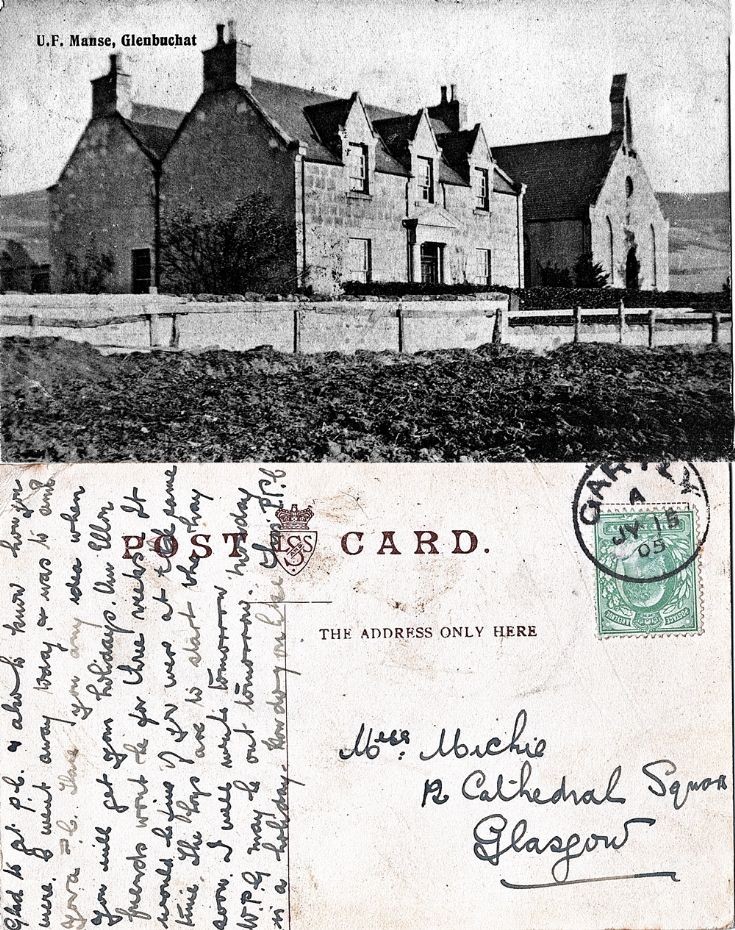 U.F. Manse, Glenbuchat
POST CARD.
THE ADDRESS ONLY HERE
GARTLY
A
JY 15
05
Miss Michie
12 Cathedral Square
Glasgow
Glad to get p.c. & also to know how you
were. G went away today, & was to send
you a p.c. Have you any idea when
you will get your holidays. Aunt Ellen
friends wont be for three weeks. It
would be fine if you were at the same
time. The boys are to start the hay
soon. I will write tomorrow
W.P.G may be out tomorrow. holiday
is a holiday. How do you like this P.P.C